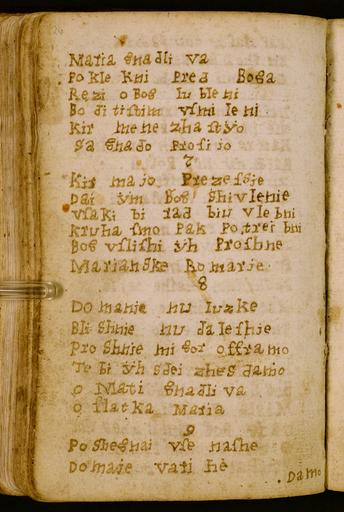 Maria gnadli va
Po kle kni pred Boga
Rezi o Bog lu ble ni
Bo di ti stim vsmi le ni
Kir mene zha styo
Sa gnado prosi jo
7
Kir majo Prezessje
Dai ym Bog shivlenie
vsaki bi rad biu vle bni
kruha smo pak po trei bni
Bog vslishi yh Proshne
Marianske Romarje
8
Domanie nu luzke
Bli shnie nu daleshie
Pro shnie mi gor offramo
Te bi yh sdei zhes damo
o Mati gnadli va
o slatka Maria
9
Po shegnai vse nashe
Domaje vati he
Damo